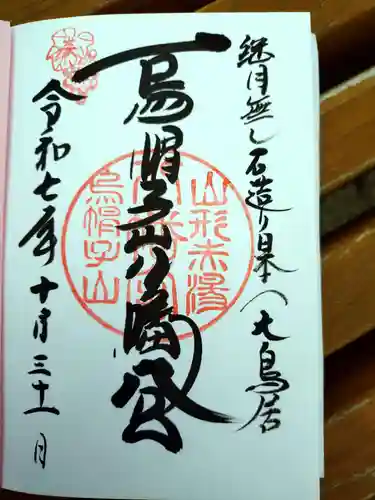 継目無し石造り日本一大鳥居
烏帽子山八幡宮
山形赤湯
烏帽子山
令和七年十月三十一日